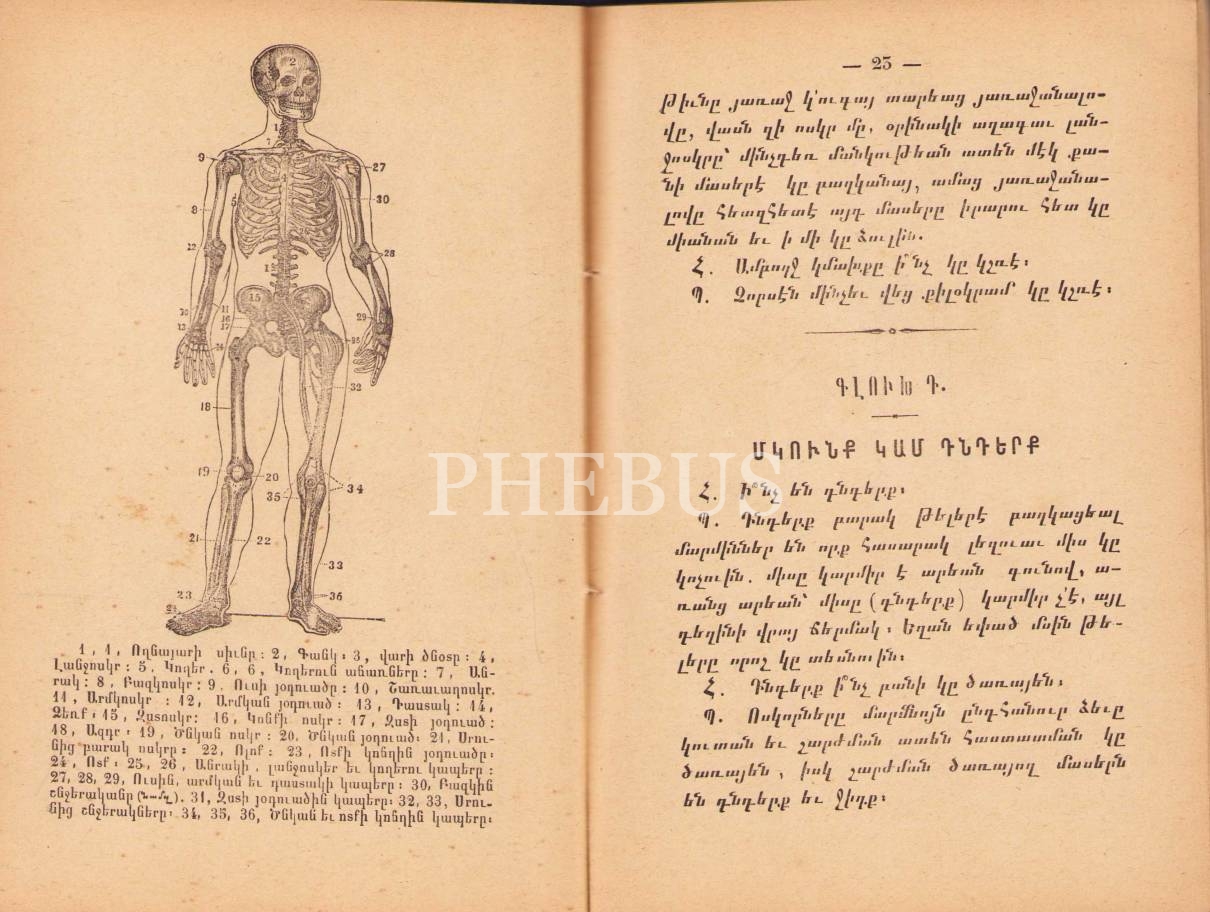 1, 1, Ողնայարի սիւնը: 2, Գանկ: 3, վարի ծնօտը: 4,
Լանջոսկր: 5, Կողեր. 6, 6, Կողերուն աճառները: 7, Ան-
րակ: 8, Բազկոսկր: 9, Ուսի յօդուածը: 10, Ճառաւաղոսկր.
11, Արմկոսկր: 12, Արմկան յօդուած: 13, Դաստակ: 14,
Ձեռք: 15, Զստոսկր: 16, Կոնքի ոսկր: 17, Զստի յօդուած:
18, Ազդր: 19, Ծնկան ոսկր: 20, Ծնկան յօդուած: 21, Սրու-
նից բարակ ոսկրը: 22, Ոլոք: 23, Ոտքի կոճղին յօդուածը:
24, Ոտք: 25, 26, Անրակի, լանջոսկեր եւ կողերու կապերը:
27, 28, 29, Ուսին, արմկան եւ դաստակի կապերը: 30, Բազկին
շնչերականը. 31, Զստի յօդուածին կապերը: 32, 33, Սրու-
նից շնչերակները: 34, 35, 36, Ծնկան եւ ոտքի կոճղին կապերը:
— 23 —
թիւնը յառաջ կ՚ուգայ տարեաց յառաջանալո-
վը, վասն զի ոսկր մը, օրինակի աղագաւ լան-
ջոսկրը՝ մինչդեռ մանկութեան ատեն մէկ քա-
նի մասերէ կը բաղկանայ, ամաց յառաջանա-
լովը հետզհետէ այդ մասերը իրարու հետ կը
միանան եւ ի մի կը ձուլին.
Հ. Ամբողջ կմախքը ի՞նչ կը կշռէ:
Պ. Չորսէն մինչեւ վեց քիլօկրամ կը կշռէ:
ԳԼՈՒԽ Դ.
ՄԿՈՒՆՔ ԿԱՄ ԴՆԴԵՐՔ
Հ. Ի՞նչ են դնդերք:
Պ. Դնդերք բարակ թելերէ բաղկացեալ
մարմիններ են որք հասարակ լեզուաւ միս կը
կոչուին. միսը կարմիր է արեան գունով, ա-
ռանց արեան՝ միսը (դնդերք) կարմիր չ՚է, այլ
դեղինի վրայ ճերմակ: Եղան եփած մսին թե-
լերը որոշ կը տեսնուին:
Հ. Դնդերք ի՞նչ բանի կը ծառայեն:
Պ. Ոսկորները մարմնոյն ընդհանուր ձեւը
կուտան եւ շարժման ատեն հաստատման կը
ծառայեն, իսկ շարժման ծառայող մասերն
են դնդերք եւ ջիղք:
PHEBUS